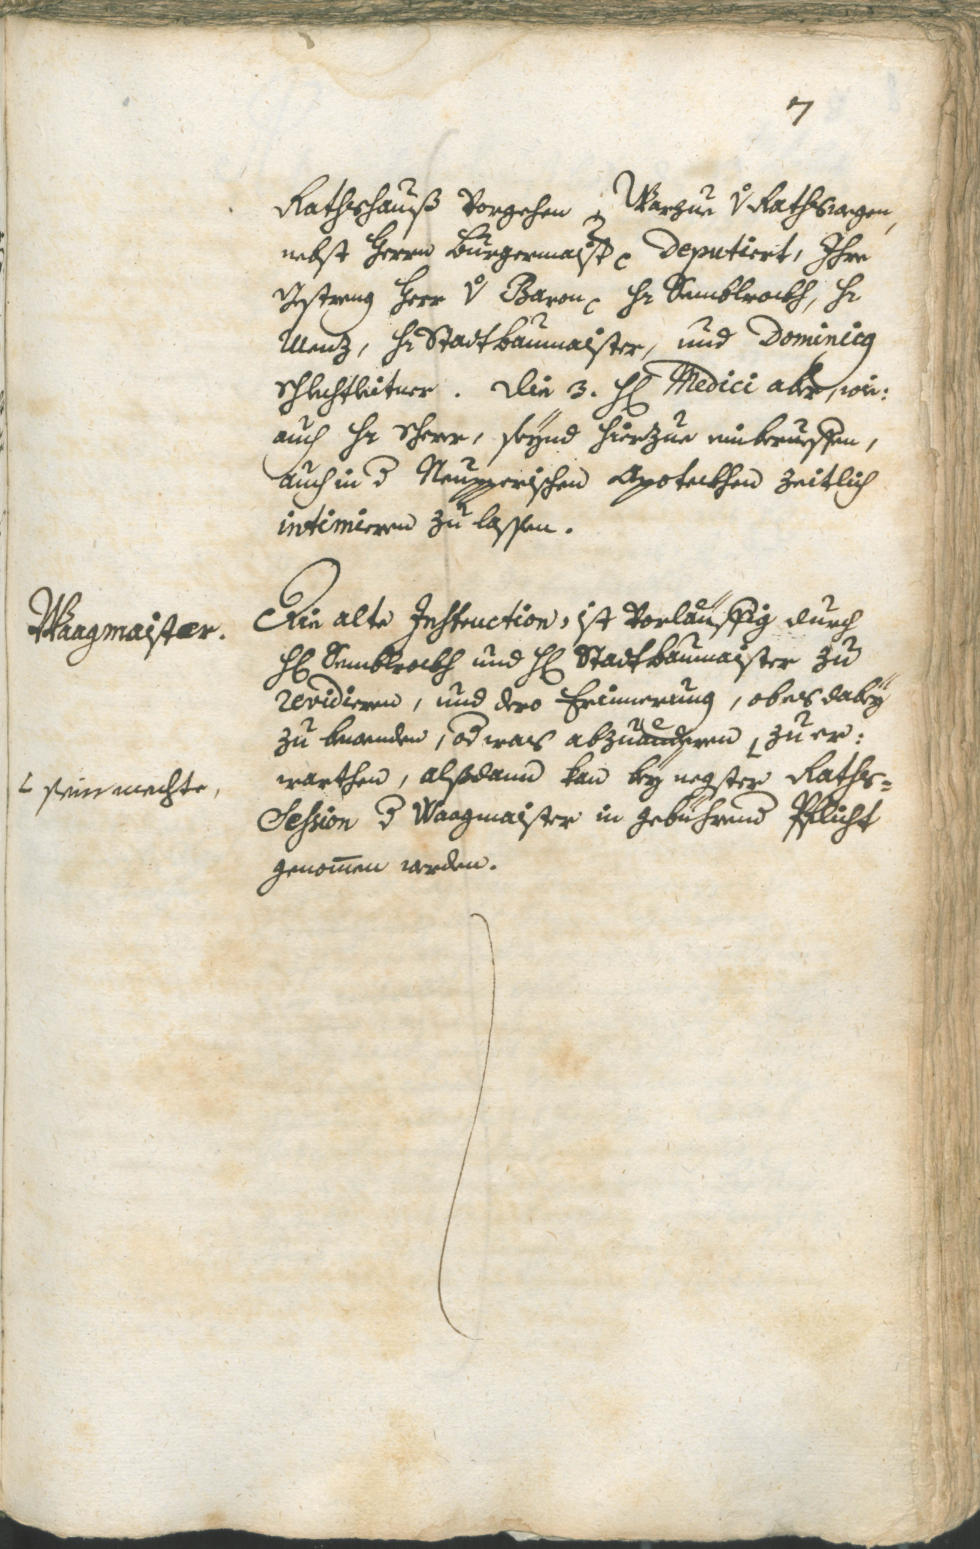 7
Rathshauß vorgehen, Warzue v Raths wegen,
nebst Herrn Burgermaistr Deputiert, Ihre
Gestreng Herr v Baron, Hr Semblrockh, Hr
Menz, Hr Stadtbaumaister, und Dominicg
Schlechtleitner. Die 3. H Medici aber, wie:
auch Hr Scherr, seynd hierzue einberueffen,
auch in d Neupperischen Apoteckhen zeitlich
intimieren zu lassen.
Waagmaister.
Die alte Instruction, ist vorläuffig durch
H Semblrockh und H Stadtbaumaister zu
revidieren, und dero Erinnerung, ob es dabey
zu bewenden, od was abzuänderen └ zu er:
└ sein mechte,
warthen, alsdann kan bey negster Raths-
Session d Waagmaister in gebührend Pflicht
genomen werden.